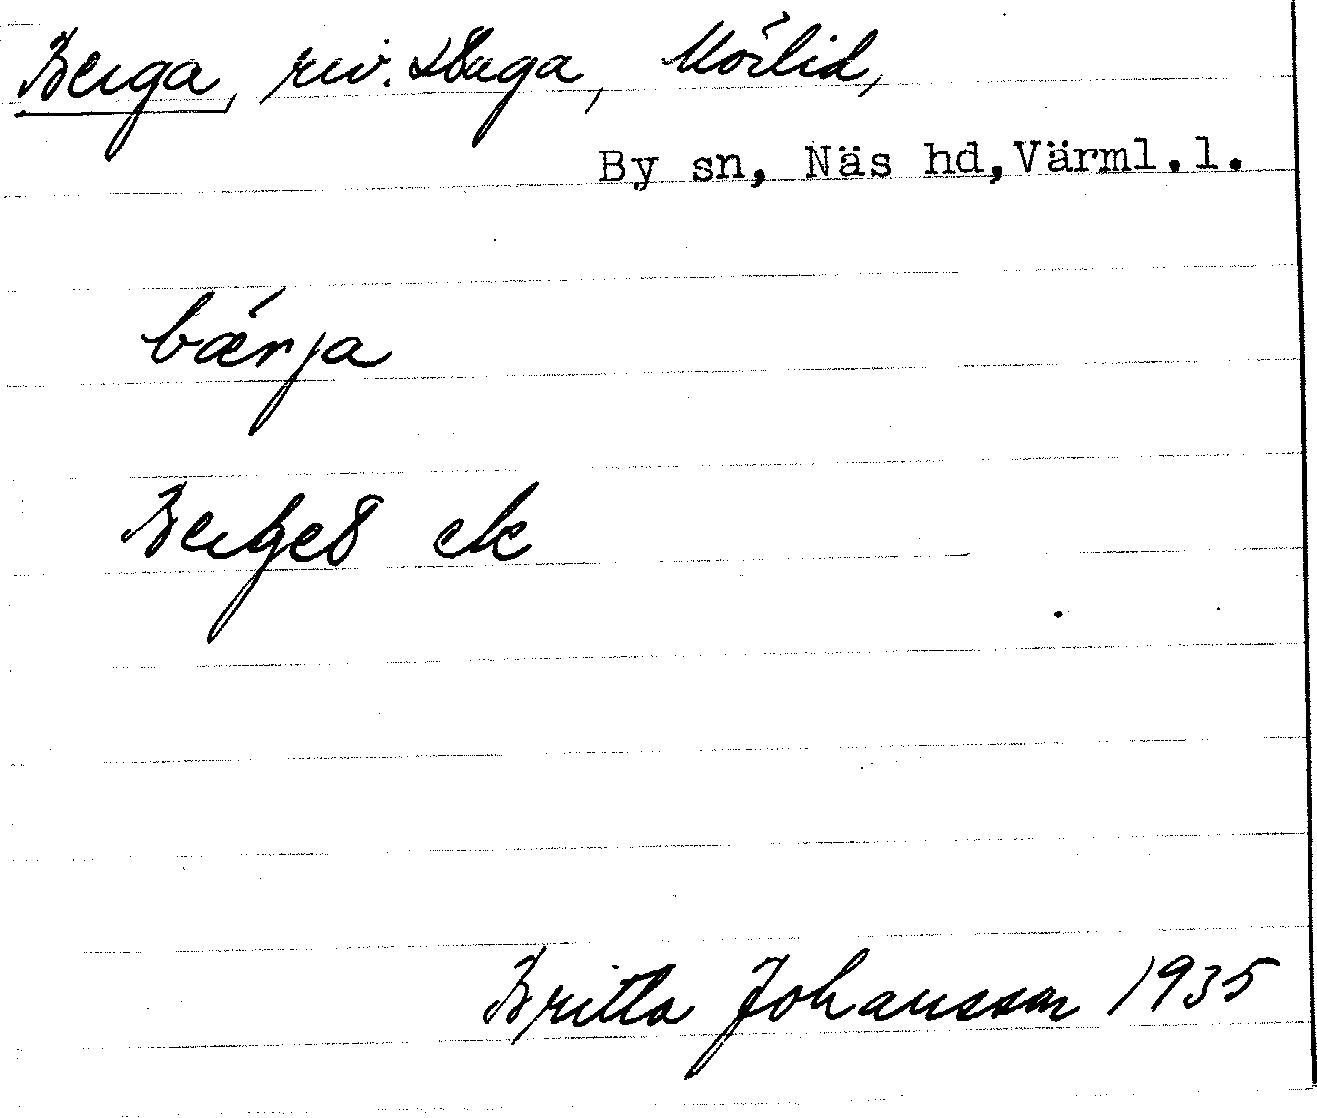 Berga, riv. stuga, Mörlid,
By sn, Näs hd, Värml.l.
bǽrja
Berget ek
Britta Johansson 1935